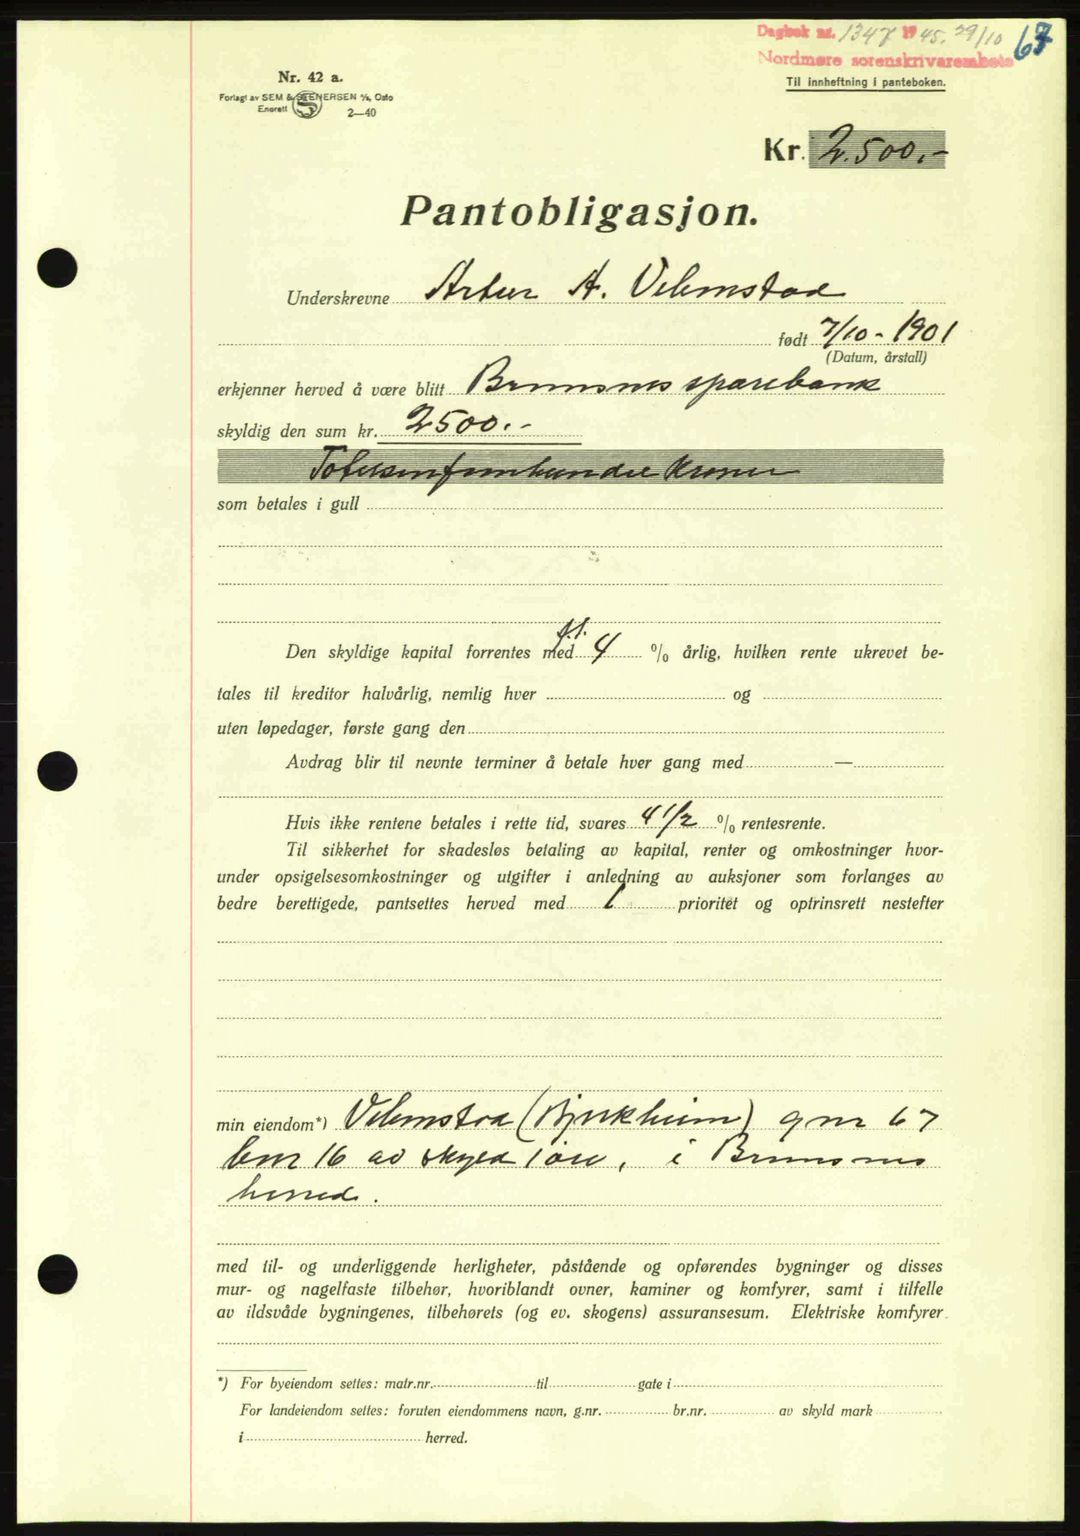 Dagbok nr. 1347 1945. 29/10
67
Nordmøre sorenskriverembete
Til innheftning i panteboken.
Nr. 42 a.
Forlagt av SEM & STENERSEN A/S, Oslo
Enerett
S
2—40
Kr. 2.500.-
Pantobligasjon.
Underskrevne Artur A. Vebenstad
født 7/10 - 1901
(Datum, årstall)
erkjenner herved å være blitt Bremsnes sparebank
skyldig den sum kr. 2500.-
Totusenfemhundre kroner
som betales i gull
Den skyldige kapital forrentes med f.t. 4 % årlig, hvilken rente ukrevet be-
tales til kreditor halvårlig, nemlig hver og
uten løpedager, første gang den
Avdrag blir til nevnte terminer å betale hver gang med —
Hvis ikke rentene betales i rette tid, svares 4 1/2 % rentesrente.
Til sikkerhet for skadesløs betaling av kapital, renter og omkostninger hvor-
under opsigelsesomkostninger og utgifter i anledning av auksjoner som forlanges av
bedre berettigede, pantsettes herved med 1 prioritet og optrinsrett nestefter
min eiendom*) (Bjørkheim) gnr 67
bnr 16 av skyld 1 øre, i Bremsnes
herred.
med til- og underliggende herligheter, påstående og opførendes bygninger og disses
mur- og nagelfaste tilbehør, hvoriblandt ovner, kaminer og komfyrer, samt i tilfelle
av ildsvåde bygningenes, tilbehørets (og ev. skogens) assuransesum. Elektriske komfyrer
*) For byeiendom settes: matr.nr. til gate i
For landeiendom settes: foruten eiendommens navn, g.nr. br.nr. av skyld mark
i herred.